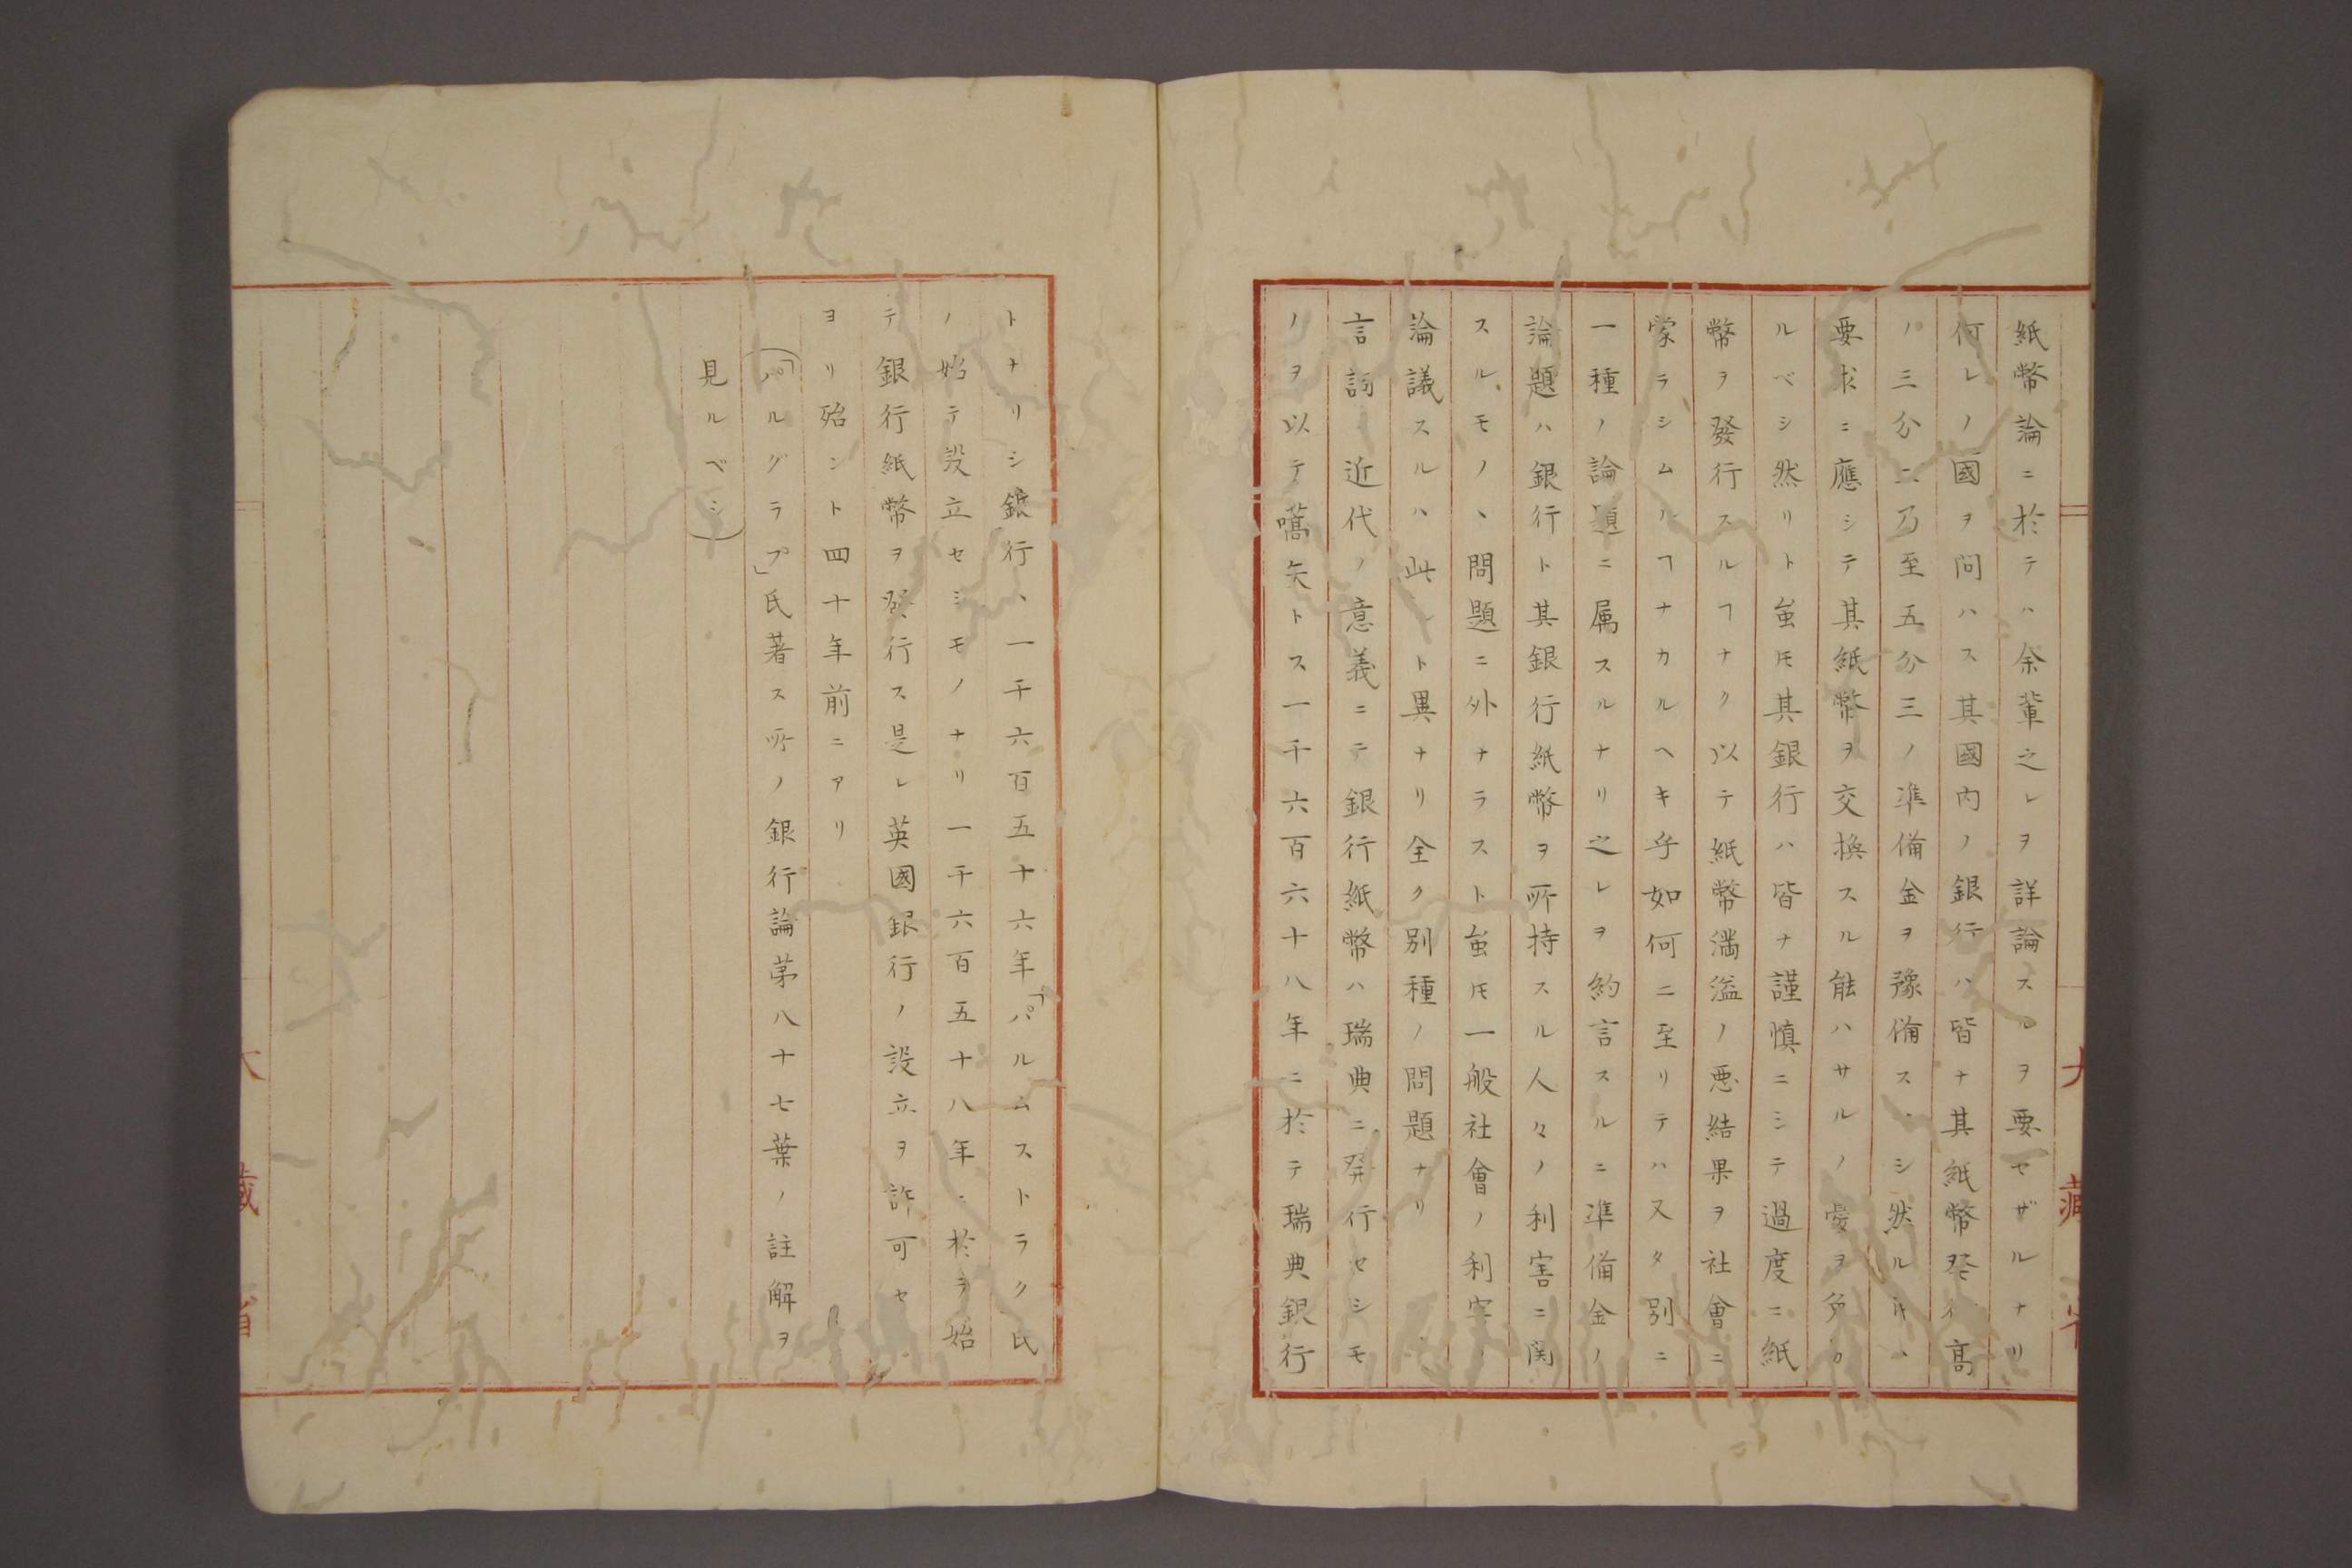 紙幣論ニ於テハ余輩之レヲ詳論スルヲ要セザルナリ
何レノ國ヲ問ハス其國内ノ銀行ハ皆ナ其紙幣発行高
ノ三分二乃至五分三ノ準備金ヲ豫備スシ然ルトキハ
要求ニ應シテ其紙幣ヲ交換スル能ハサルノ憂ヲ免カ
ルベシ然リト雖𪜈其銀行ハ皆ナ謹慎ニシテ過度ニ紙
幣ヲ發行スルヿナク以テ紙幣満溢ノ悪結果ヲ社會ニ
蒙ラシムルヿナカルヘキ乎如何ニ至リテハ又タ別ニ
一種ノ論題ニ属スルナリ之レヲ約言スルニ準備金ノ
論題ハ銀行ト其銀行紙幣ヲ所持スル人々ノ利害ニ関
スルモノヽ問題ニ外ナラスト雖𪜈一般社會ノ利害
論議スルハ此レト異ナリ全ク別種ノ問題ナリ
言詞近代ノ意義ニテ銀行紙幣ハ瑞典ニ発行セシモ
ノヲ以テ嚆矢トス一千六百六十八年ニ於テ瑞典銀行
大藏省
トナリシ銀行ハ一千六百五十六年「パルムストラク氏
ノ始テ設立セシモノナリ一千六百五十八年ニ於テ始
テ銀行紙幣ヲ発行ス是レ英國銀行ノ設立ヲ許可セ
ヨリ殆ント四十年前ニアリ
(「パルグラプ」氏著ス所ノ銀行論第八十七葉ノ註解ヲ
見ルベシ)
大藏省